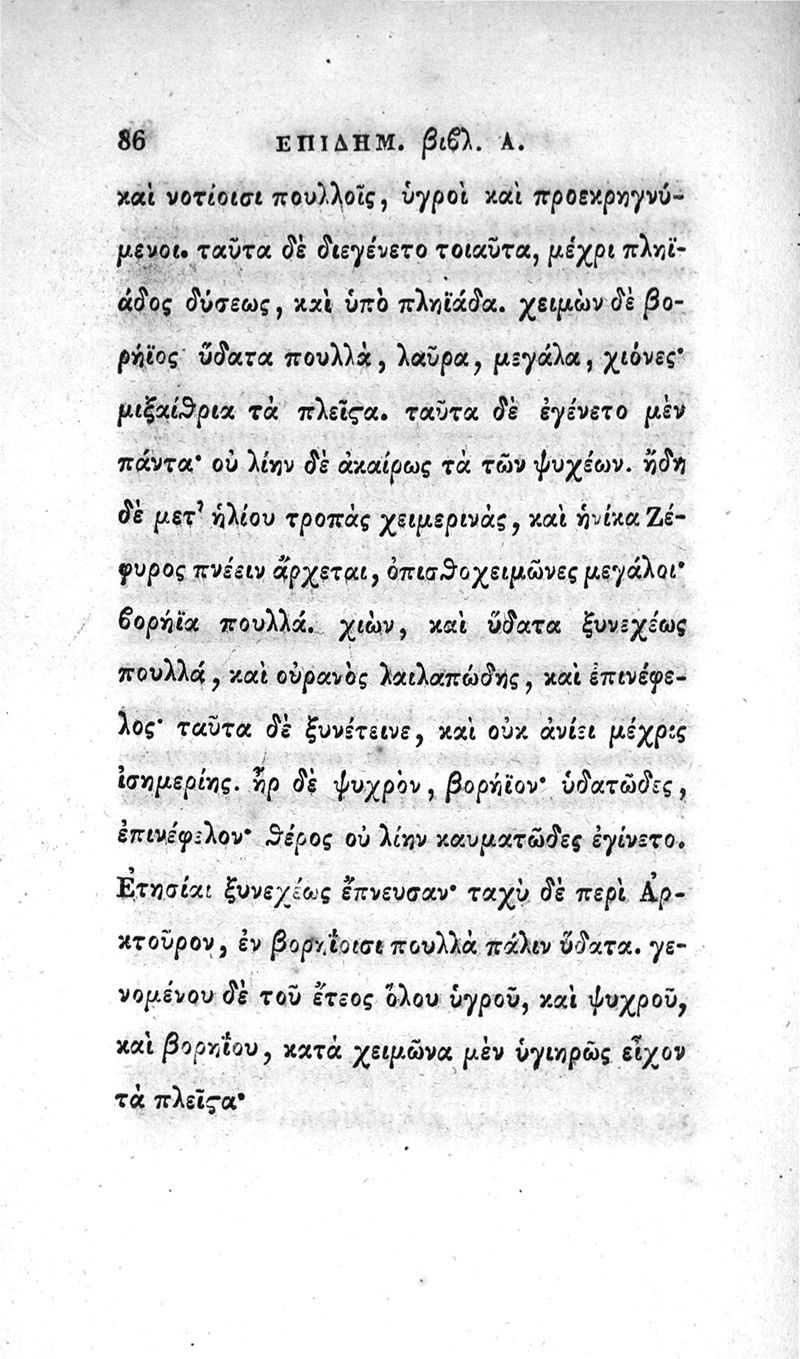 86 ΕΠΙΔΗΜ. βιϐλ. Α.
καὶ νοτίοισι πουλλοῖς, ὑγροὶ καὶ προεκρηγνύ-
μενοι. ταῦτα δὲ διεγένετο τοιαῦτα, μέχρι πληϊ-
άδος δύσεως, καὶ ὑπὸ πληϊάδα. χειμὼν δὲ βο-
ρήϊος ὕδατα πουλλὰ, λαῦρα, μεγάλα, χιόνες·
μιξαίθρια τὰ πλεῖϛα. ταῦτα δὲ ἐγένετο μὲν
πάντα· οὐ λίην δὲ ἀκαίρως τὰ τῶν ψυχέων. ἤδη
δὲ μετ’ ἡλίου τροπὰς χειμερινὰς, καὶ ἡνίκα Ζέ-
φυρος πνέειν ἄρχεται, ὀπισθοχειμῶνες μεγάλοι·
ϐορήϊα πουλλά. χιὼν, καὶ ὕδατα ξυνεχέως
πουλλά, καὶ οὐρανὸς λαιλαπώδης, καὶ ἐπινέφε-
λος· ταῦτα δὲ ξυνέτεινε, καὶ οὐκ ἀνίει μέχρις
ἰσημερίης. ἦρ δὲ ψυχρὸν, βορήϊον· ὑδατῶδες,
ἐπινέφελον· θέρος οὐ λίην καυματῶδες ἐγίνετο.
Ἐτησίαι ξυνεχέως ἔπνευσαν· ταχὺ δὲ περὶ Ἀρ-
κτοῦρον, ἐν βορηΐοισι πουλλὰ πάλιν ὕδατα. γε-
νομένου δὲ τοῦ ἔτεος ὅλου ὑγροῦ, καὶ ψυχροῦ,
καὶ βορηΐου, κατὰ χειμῶνα μὲν ὑγιηρῶς εἶχον
τὰ πλεῖϛα·